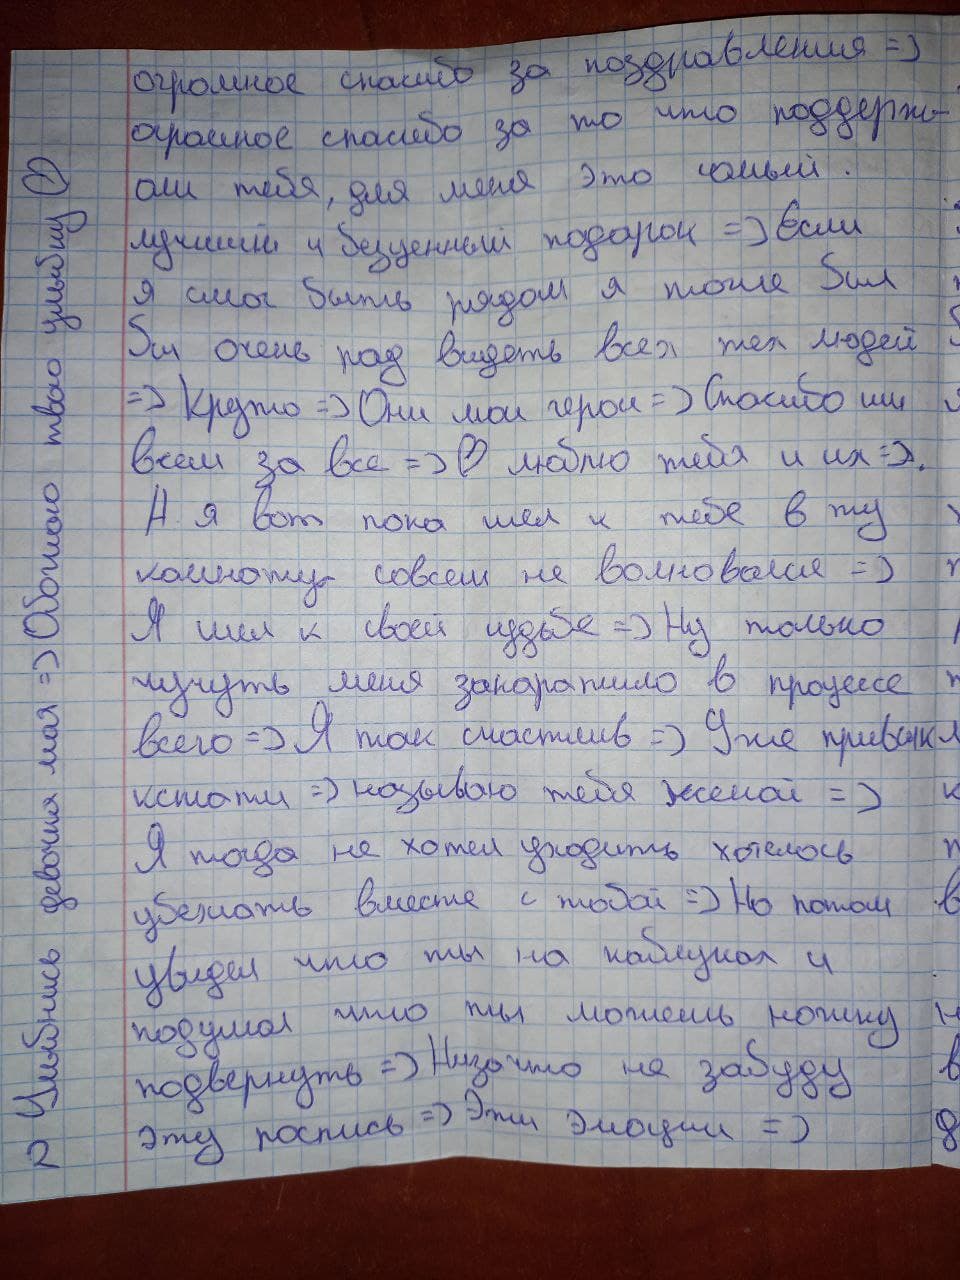 огромное спасибо за поздравления =)
огромное спасибо за то что поддерж-
али тебя, для меня это самый.
лучший и безценный подарок =) Если
я смог быть рядом я тоже был
бы очень рад видеть всех тех людей
=) Круто =) Они мои герои =) Спасибо им
всем за все =) ♡ люблю тебя и их =).
А я вот пока шел к тебе в ту
комнату совсем не волновался =)
Я шел к своей судьбе =) Ну только
чучуть меня закаратило в процессе
всего =) Я так счастлив =) Уже привык
кстати =) называю тебя женой =)
Я тогда не хотел уходить хотелось
убежать вместе с тобой =) Но потом
увидел что ты на каблуках и
подумал что ты можешь ножку
подвернуть =) Низочто не забуду
эту роспись =) Эти эмоции =)
2 Улыбнись девочка моя =) Обожаю твою улыбку ♡